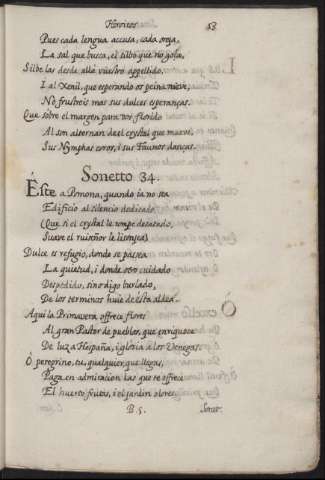 Heroicos.
53
Pues cada lengua accusa, cada oreja,
La sal que busca, el silbo que no goza,
Silbelas desde allà vuestro appellido.
I al Xenil, que esperando os peina nieve,
No frustreis mas sus dulces esperanças.
Que sobre el margen para vos florido
Al son alternan del crystal que mueve,
Sus Nymphas coros, i sus Faunos danças.
Sonetto 34.
Este a Pomona, quando ia no sea
Edificio al silencio dedicado,
(Que si el crystal le rompe desatado,
Suave el ruiseñor le lisonjea)
Dulce es refugio, donde se passea
La quietud, i donde otro cuidado
Despedido, sino digo burlado,
De los terminos huie de esta aldea.
Aqui la Primavera offrece flores
Al gran Pastor de pueblos, que enriquece
De luz a Hespaña, i gloria a los Venegas.
O peregrino, tu, qualquier que llegas,
Paga en admiracion las que te offrece
El huerto frutas, i el jardin olores.
B. 5.
Sonet-